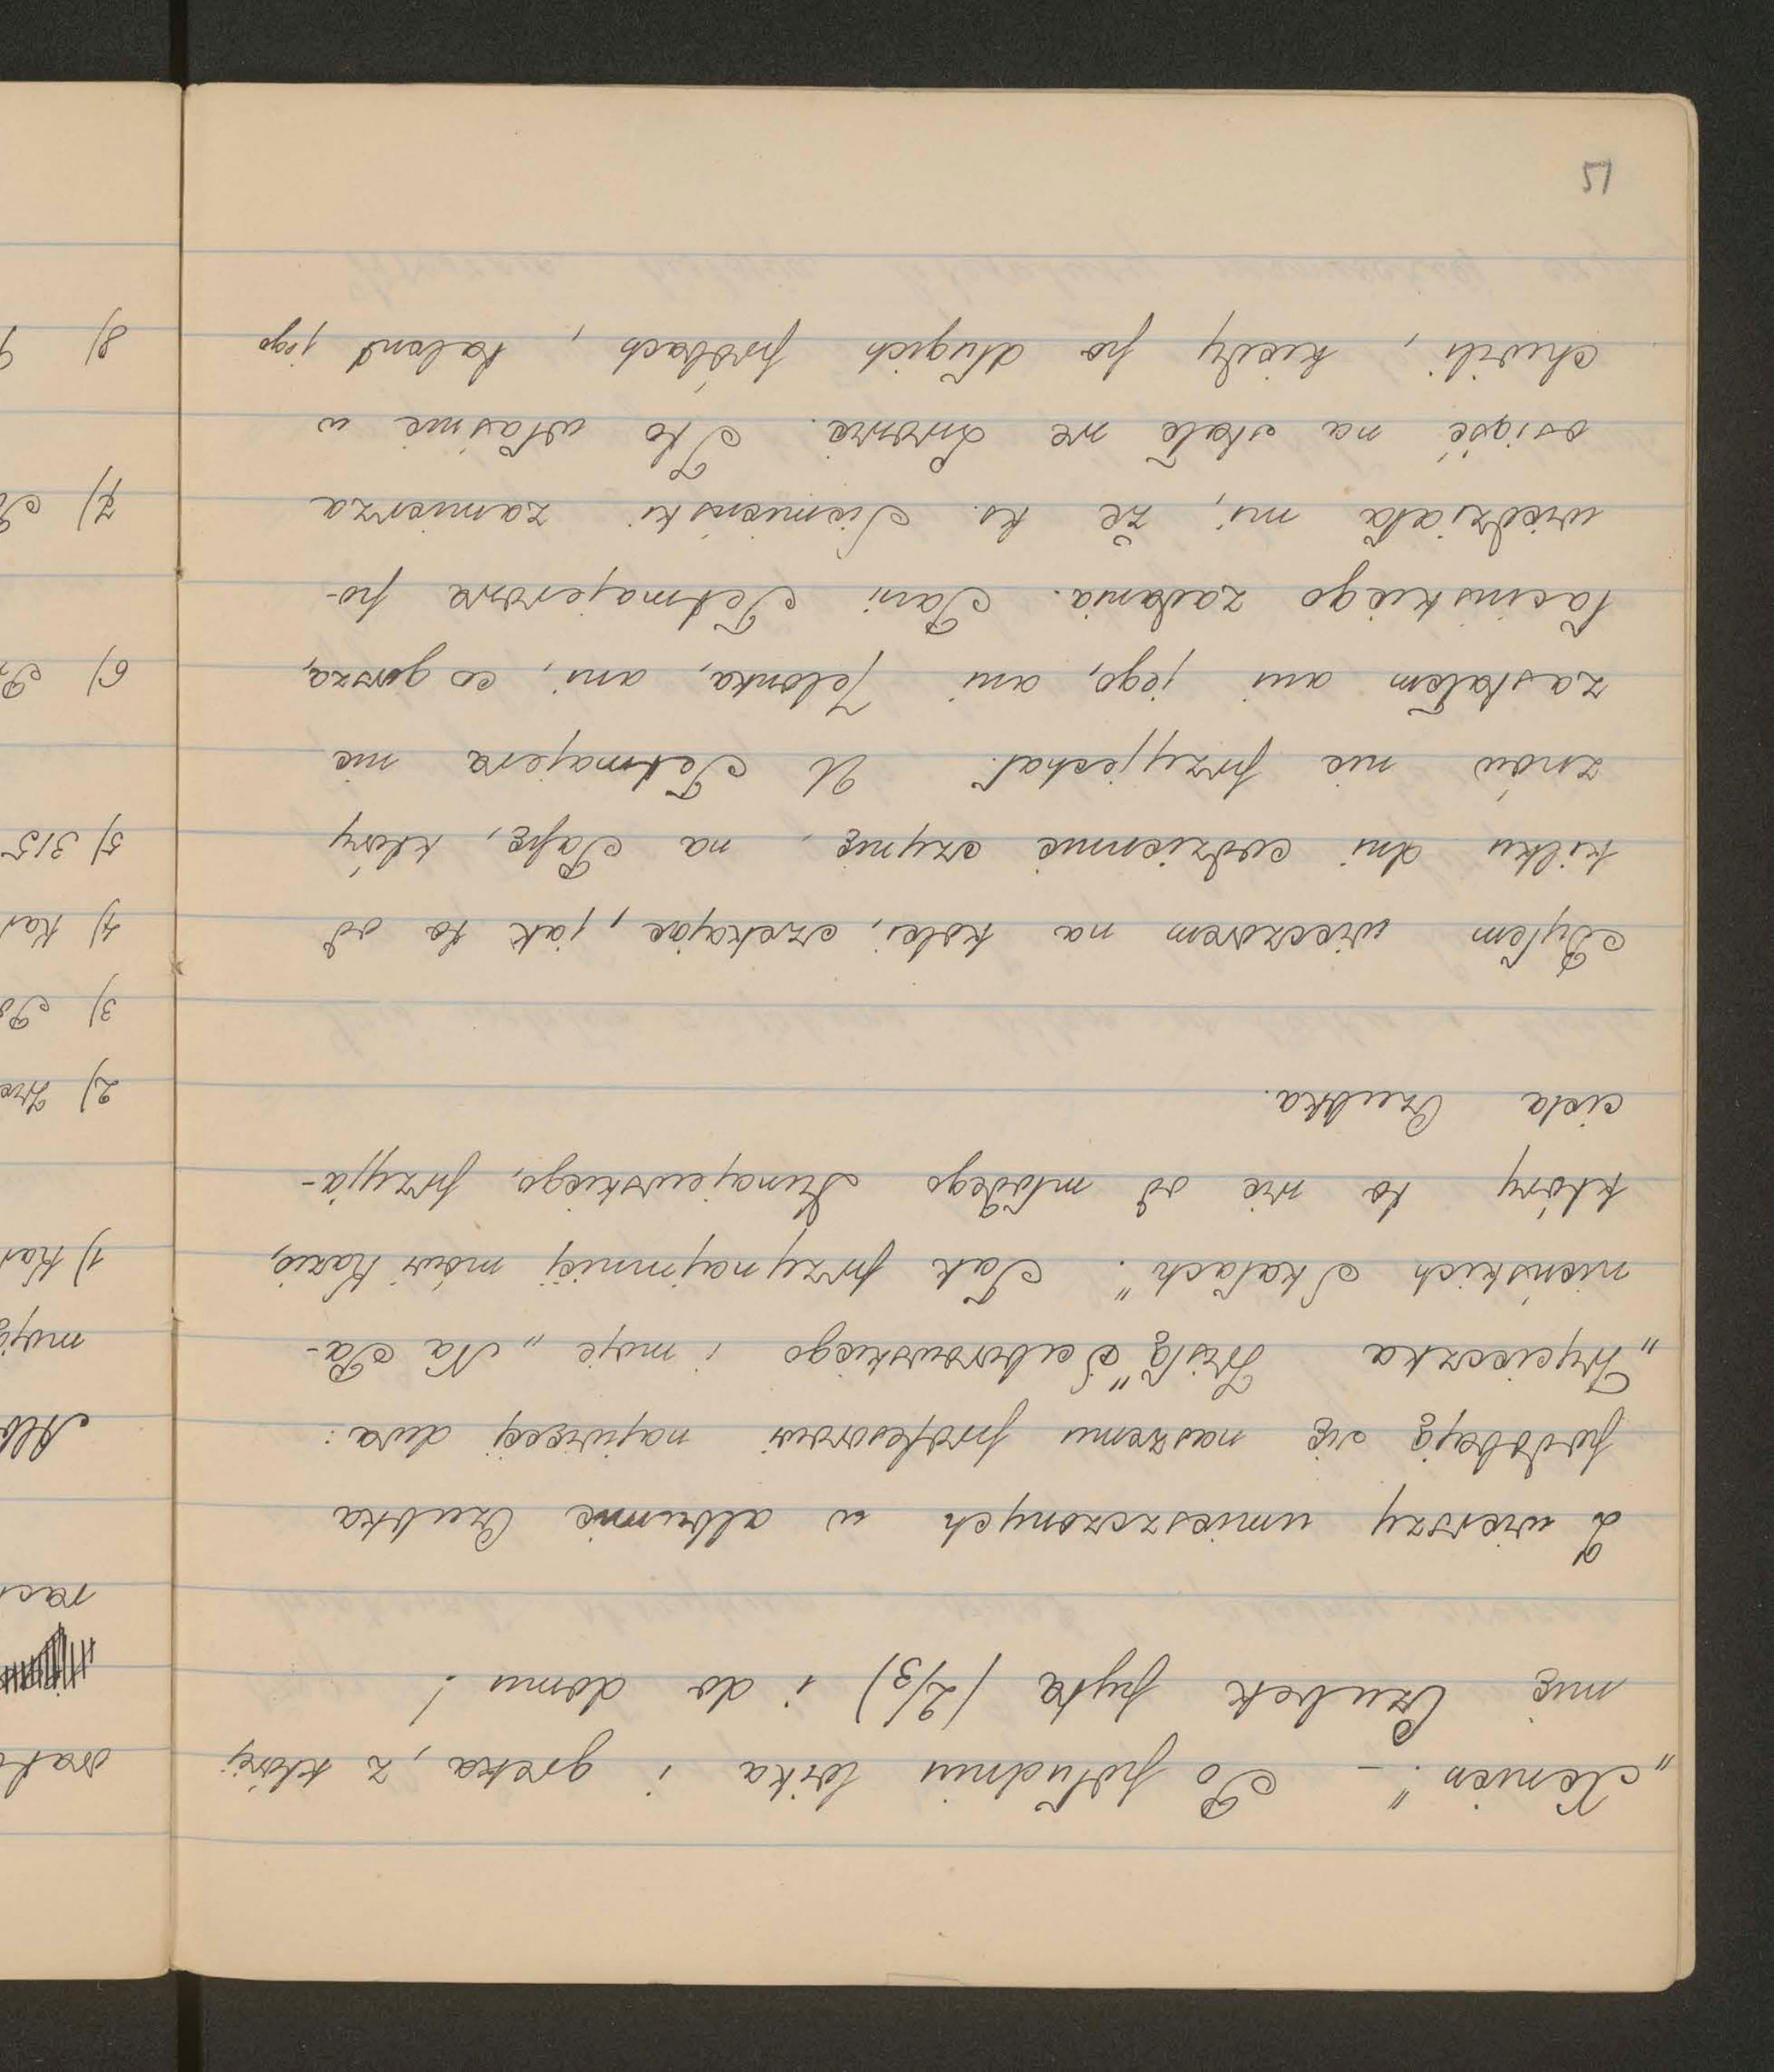 „Xenien". — Po południu lorka i greka, z której
mię Czubek pyta (2/3) i do domu!
Z wierszy umieszczonych w albumie Czubka
podobają się naszemu profesorowi najwięcej dwa:
„Wycieczka Wisłą" Seborowskiego i moje „Na Pa-
nieńskich Skałach". Tak przynajmniej mówi Kazio,
który to wie od młodego Dunajewskiego, przyja-
ciela Czubka.
Byłem wieczorem na kolei, czekając, jak to od
kilku dni codziennie czynię, na Papę, który
znów nie przyjechał. U Tetmajera nie
zastałem ani jego, ani Jelonka, ani, co gorsza,
łacińskiego zadania. Pani Tetmajerowa po-
wiedziała mi, że ks. Siemieński zamierza
osiąść na stałe we Lwowie. I to właśnie w
chwili, kiedy po długich próbach, talent jego
51
orat
rac
Alb
moje
1) Kar
2) Wie
3) Po
4) Kar
5) 315
6) Pr
7)
8)